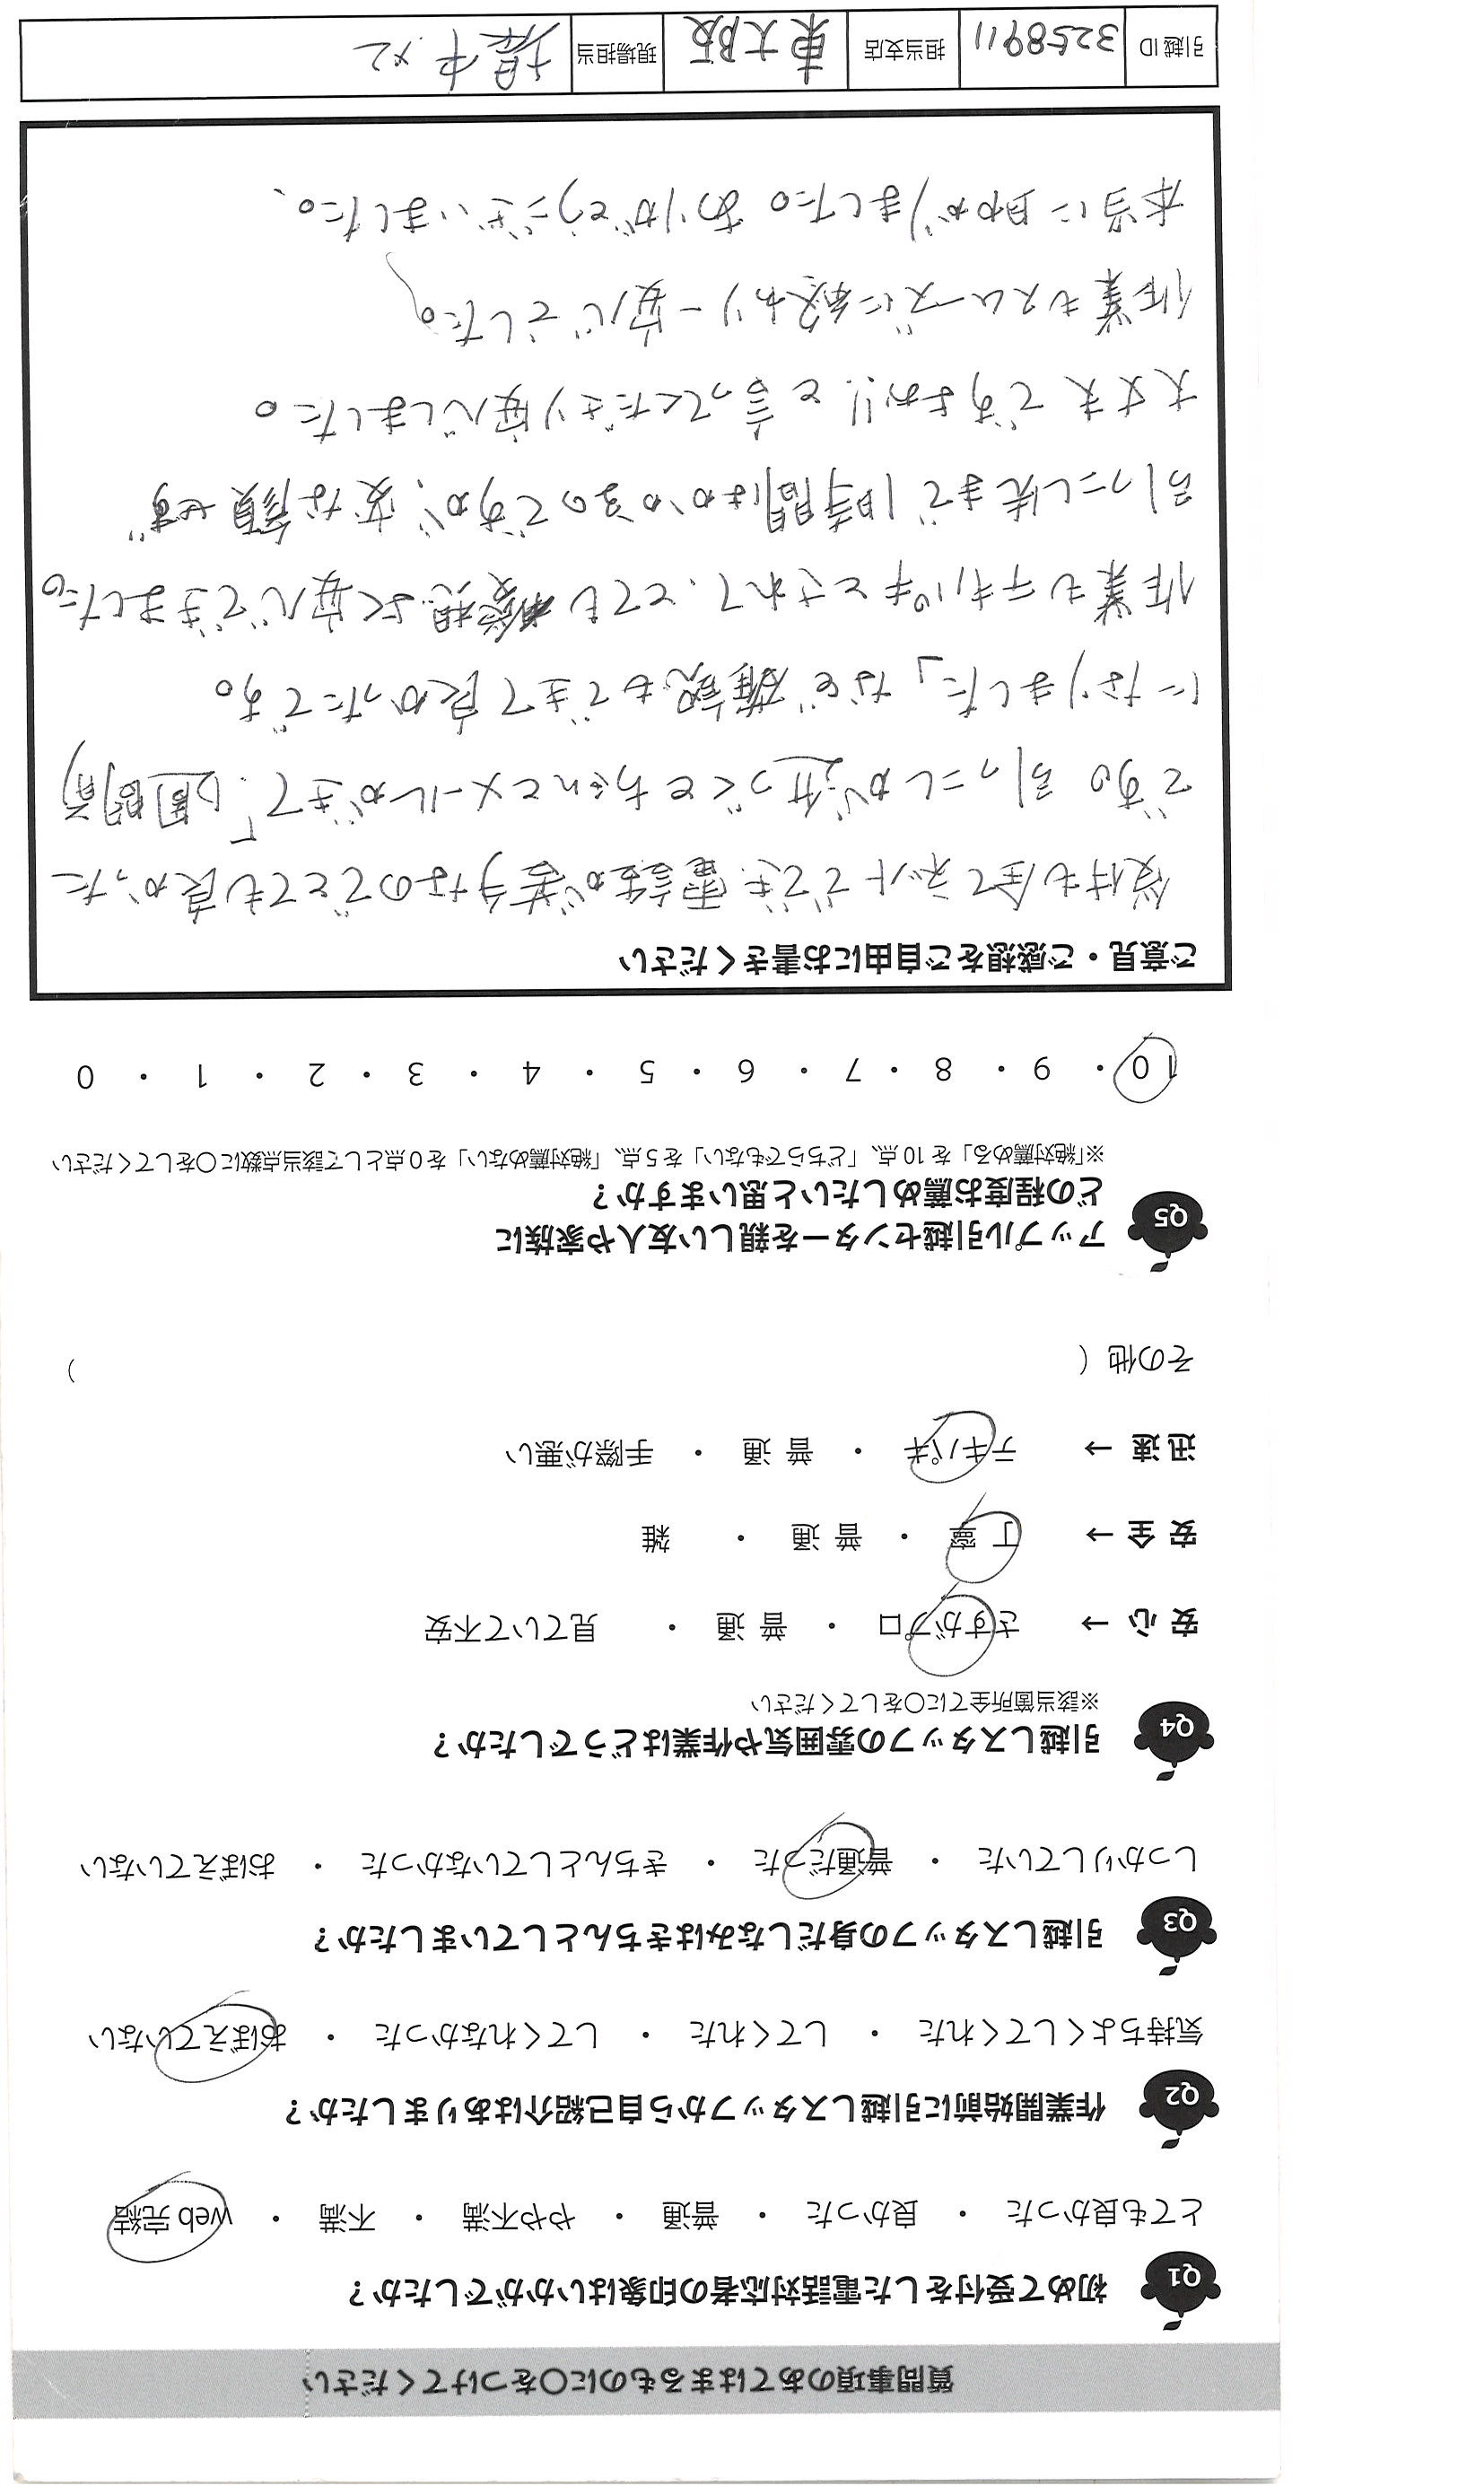 質問事項のあてはまるものに○をつけてください
Q1 初めて受付をした電話対応者の印象はいかがでしたか？
とても良かった ・ 良かった ・ 普通 ・ やや不満 ・ 不満 ・ web 完結
Q2 作業開始前に引越しスタッフから自己紹介はありましたか？
気持ちよくしてくれた ・ してくれた ・ してくれなかった ・ おぼえていない
Q3 引越しスタッフの身だしなみはきちんとしていましたか？
しっかりしていた ・ 普通だった ・ きちんとしていなかった ・ おぼえていない
Q4 引越しスタッフの雰囲気や作業はどうでしたか？
※該当箇所全てに○をしてください
安 心 → さすがプロ ・ 普 通 ・ 見ていて不安
安 全 → 丁 寧 ・ 普 通 ・ 雑
迅 速 → テキパキ ・ 普 通 ・ 手際が悪い
その他（ ）
Q5 アップル引越センターを親しい友人や家族に
どの程度お薦めしたいと思いますか？
※「絶対薦める」を10点、「どちらでもない」を5点、「絶対薦めない」を0点として該当点数に○をしてください
10 ・ 9 ・ 8 ・ 7 ・ 6 ・ 5 ・ 4 ・ 3 ・ 2 ・ 1 ・ 0
ご意見・ご感想をご自由にお書きください
受付も全てネットででき、電話が苦手なのでとても良かった
です。引っこしが近づくとちゃんとメールがきて、「1週間前
になりました」など確認もできて良かったです。
作業もテキパキとされて、とても愛想よく安心できました。
引っこし先まで1時間はかかるのですが、変な顔せず
大丈夫ですよお!!と言ってくださり安心しました。
作業もスムーズに終わり一安心でした。
本当に助かりました。ありがとうございました。
引越ID 3258911 担当支店 東大阪 現場担当 ×2